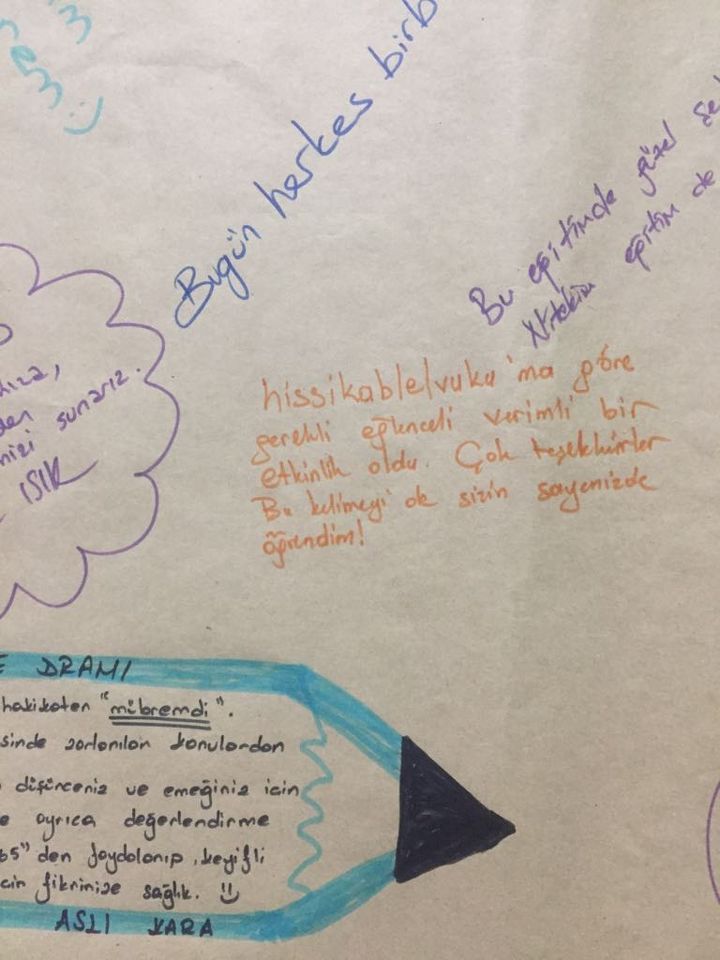 Bugün herkes birb
Bu eğitimde güzel
Nitekim eğitim de
nıza,
den
nizi sunarız.
IŞIK
hissikablelvuku'ma göre
gerekli eğlenceli verimli bir
etkinlik oldu. Çok teşekkürler
Bu kelimeyi de sizin sayenizde
öğrendim!
E DRAMI
hakikaten "mübremdi".
sinde zorlanılan konulardan
düşünceniz ve emeğiniz icin
e ayrıca değerlendirme
65" den faydalanıp, keyifli
cin fikrinize sağlık. :)
ASLI KARA